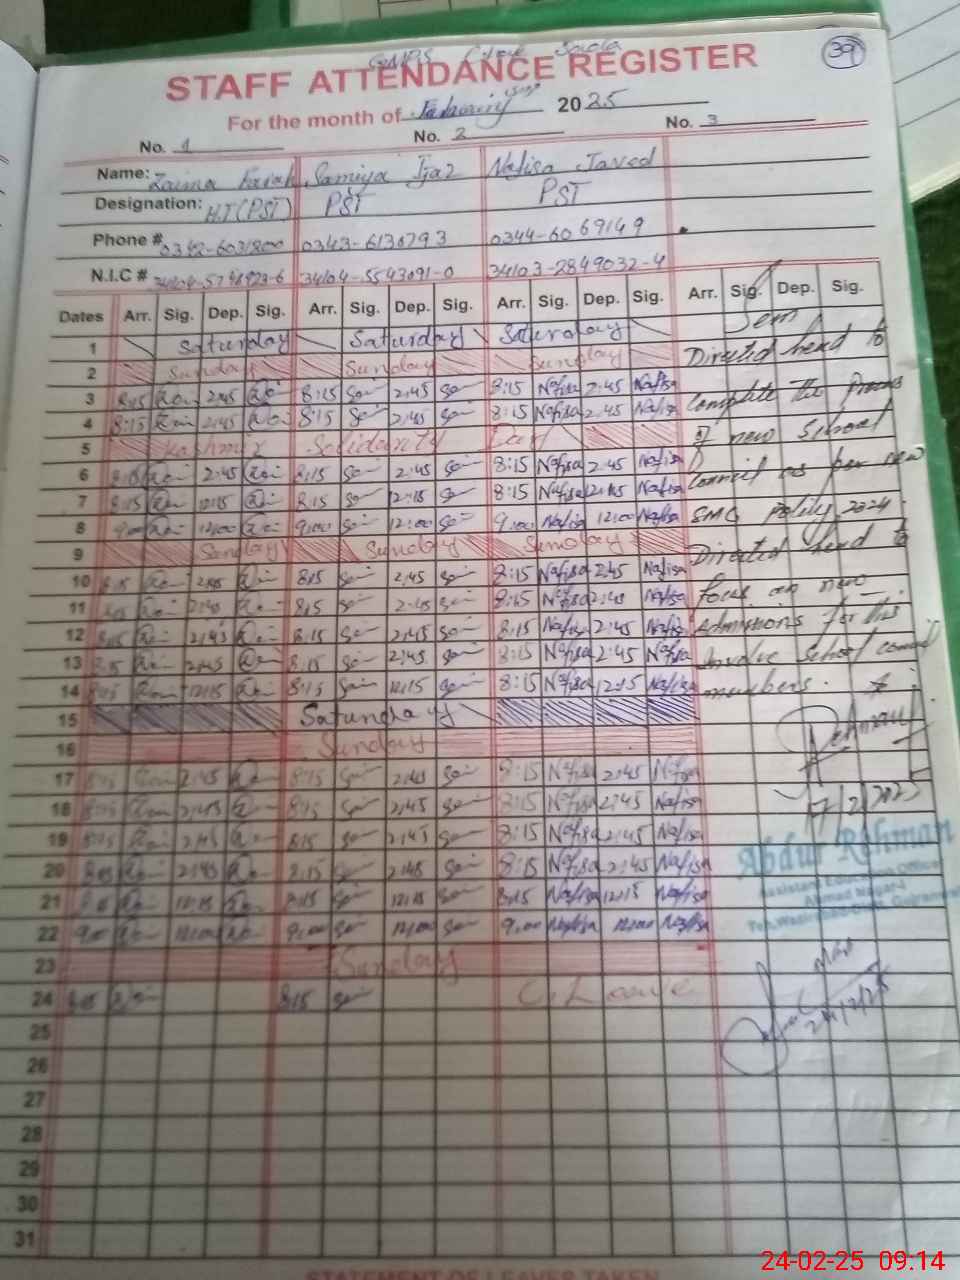 GMPS
STAFF ATTENDANCE REGISTER
39
For the month of February 2025
No. 1 No. 2 No. 3
Name: Zaima Farah Samiya Ijaz Nafisa Javed
Designation: H.T (PST) PST PST
Phone # 0342-6031800 0343-6130793 0344-6069149
N.I.C # 34104-5543091-0 34103-2849032-4
Dates Arr. Sig. Dep. Sig. Arr. Sig. Dep. Sig. Arr. Sig. Dep. Sig. Arr. Sig. Dep. Sig.
1 Saturday Saturday Saturday
2 Sunday Sunday Sunday
3 8:15 2:45 8:15 2:45 8:15 Nafisa 2:45 Nafisa
4 8:15 2:45 8:15 2:45 8:15 Nafisa 2:45 Nafisa
5 Kashmir Solidarity Day
6 8:15 2:45 8:15 2:45 8:15 Nafisa 2:45 Nafisa
7 8:15 12:15 8:15 12:15 8:15 Nafisa 12:15 Nafisa
8 9:00 12:00 9:00 12:00 9:00 Nafisa 12:00 Nafisa
9 Sunday Sunday Sunday
10 8:15 2:45 8:15 2:45 8:15 Nafisa 2:45 Nafisa
11 8:15 2:45 8:15 2:45 8:15 Nafisa 2:45 Nafisa
12 8:15 2:45 8:15 2:45 8:15 Nafisa 2:45 Nafisa
13 8:15 2:45 8:15 2:45 8:15 Nafisa 2:45 Nafisa
14 8:15 12:15 8:15 12:15 8:15 Nafisa 12:15 Nafisa
15 Saturday
16 Sunday
17 8:15 2:45 8:15 2:45 8:15 Nafisa 2:45 Nafisa
18 8:15 2:45 8:15 2:45 8:15 Nafisa 2:45 Nafisa
19 8:15 2:45 8:15 2:45 8:15 Nafisa 2:45 Nafisa
20 8:15 2:45 8:15 2:45 8:15 Nafisa 2:45 Nafisa
21 8:15 12:15 8:15 12:15 8:15 Nafisa 12:15 Nafisa
22 9:00 12:00 9:00 12:00 9:00 Nafisa 12:00 Nafisa
23 Sunday
24 8:15 8:15 C. Leave
25
26
27
28
29
30
31
Directed head to
complete the
of new School
Council as per new
SMC Policy 2024.
Directed head to
focus on new
Admissions for this
involve School council
members.
Rehman
17/2/2025
Abdur Rehman
Assistant Education Officer
Ahmad Nagar-I
Teh. Wazirabad Distt. Gujranwala
24/2/25
STATEMENT OF LEAVES TAKEN
24-02-25 09:14